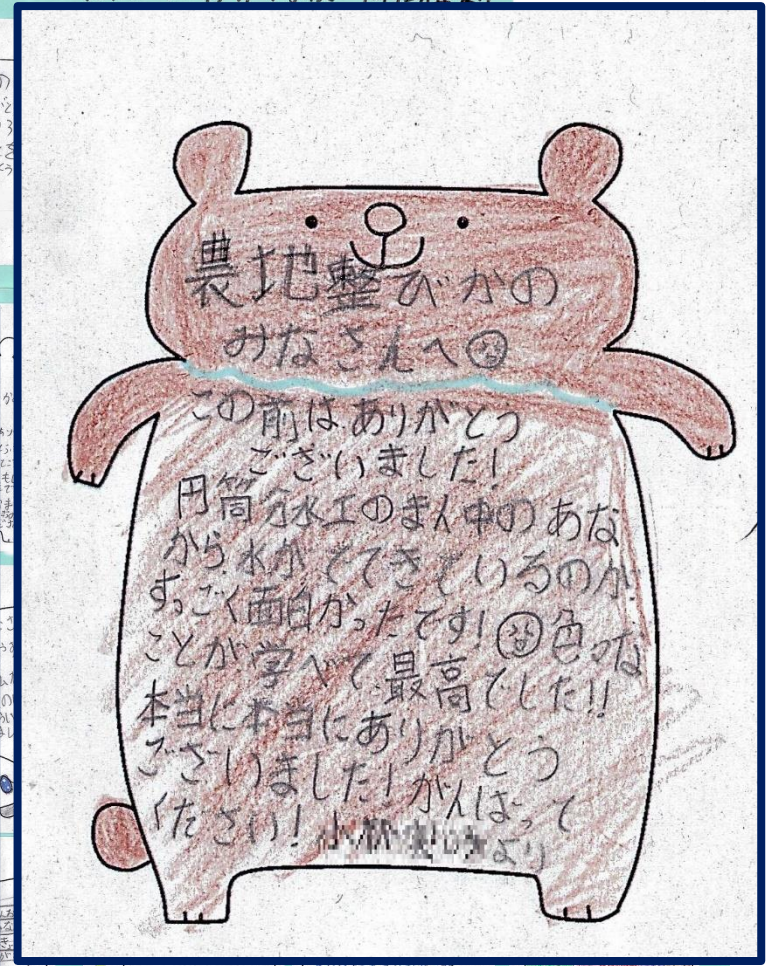 農地整びかの
みなさんへ
この前はありがとう
ございました！
円筒分水工のまん中のあな
から水がでてきているのが
すっごく面白かったです！色々な
ことが学べて、最高でした!!
本当に本当にありがとう
ございました！がんばって
ください！
より